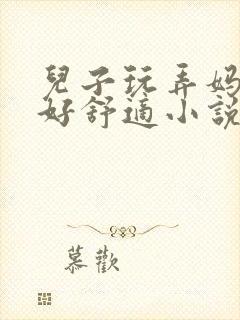 兒子玩弄妈
好舒適小說
慕歡